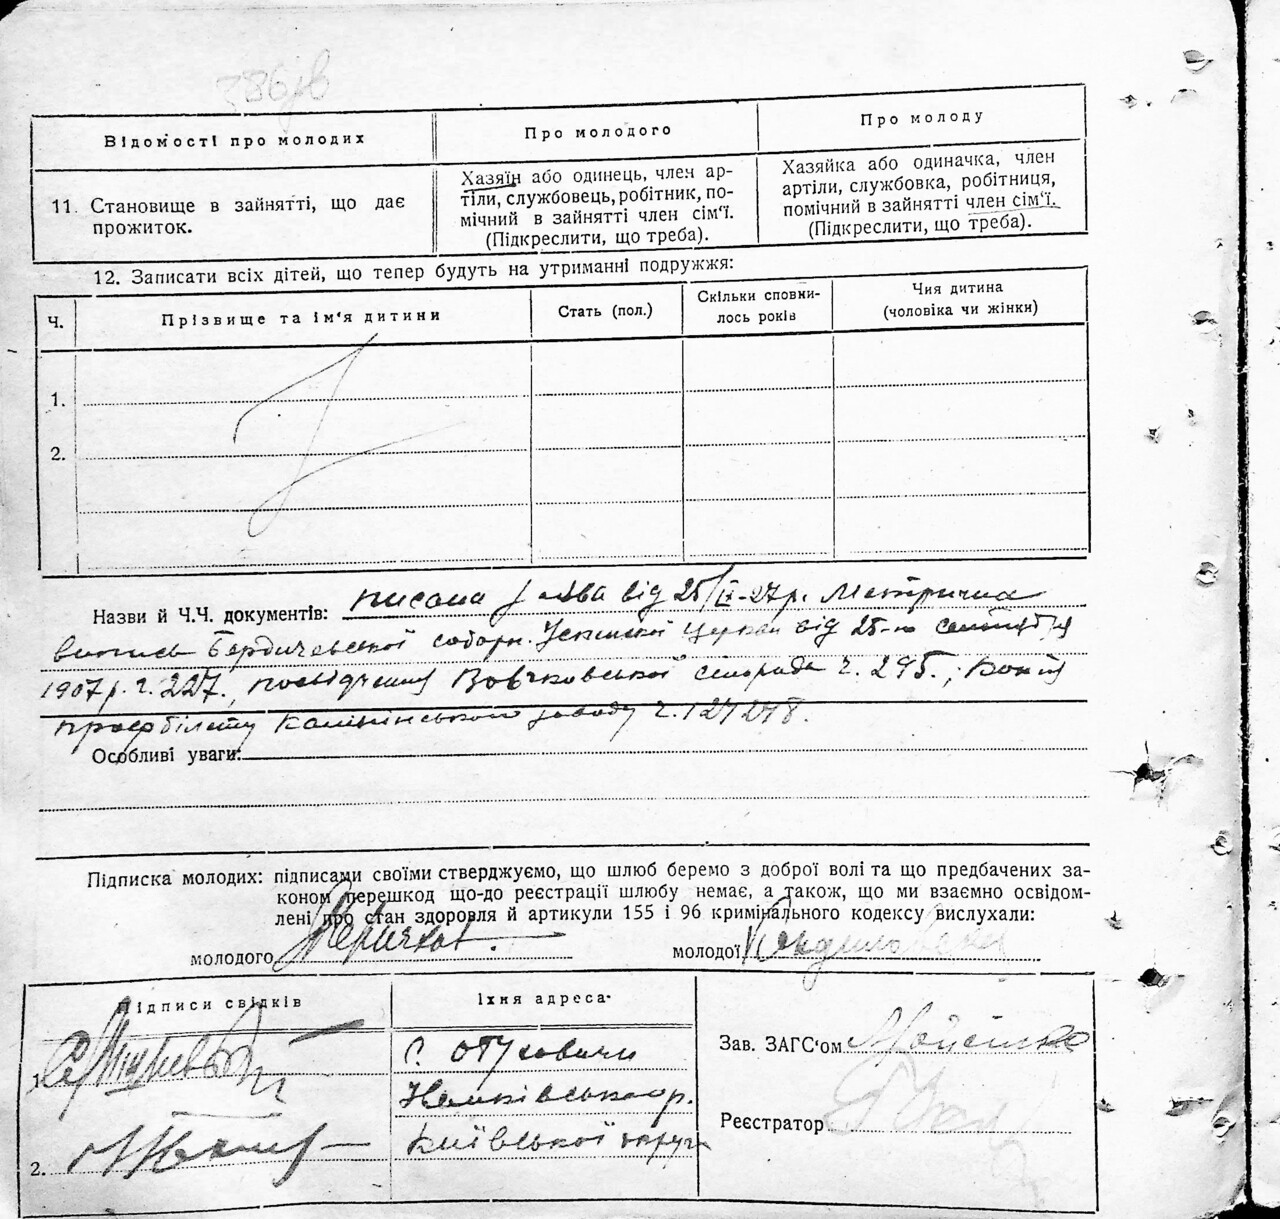 Відомості про молодих
Про молодого
Про молоду
11. Становище в зайнятті, що дає
прожиток.
Хазяїн або одинець, член ар-
тіли, службовець, робітник, по-
мічний в зайнятті член сім'ї.
(Підкреслити, що треба).
Хазяйка або одиначка, член
артіли, службовка, робітниця,
помічний в зайнятті член сім'ї.
(Підкреслити, що треба).
12. Записати всіх дітей, що тепер будуть на утриманні подружжя:
Ч.
Прізвище та ім'я дитини
Стать (пол.)
Скільки сповни-
лось років
Чия дитина
(чоловіка чи жінки)
1.
2.
Назви й Ч.Ч. документів: писана заява від 25/IX-27р. Метрична
випись Бердичевської соборн. Успенської церкви від 25-го
1907 р. ч. 227, посвідчення сільради ч. 295.; Копія
профбілету заводу ч. 127278.
Особливі уваги:
Підписка молодих: підписами своїми стверджуємо, що шлюб беремо з доброї волі та що предбачених за-
коном перешкод що-до реєстрації шлюбу немає, а також, що ми взаємно освідом-
лені про стан здоровля й артикули 155 і 96 кримінального кодексу вислухали:
молодого
молодої
Підписи свідків
Їхня адреса
1.
с.
р.
Київської округи
2.
Зав. ЗАГС'ом
Реєстратор